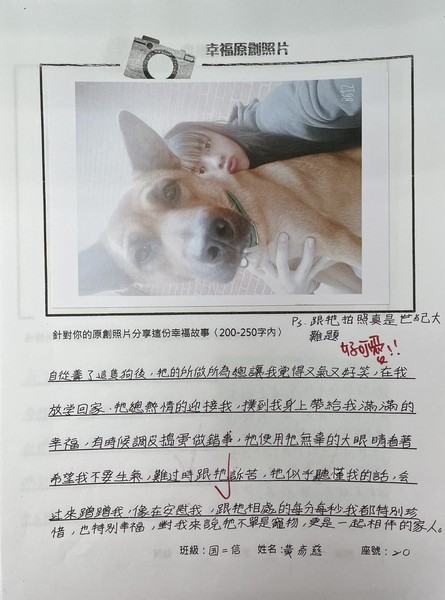 幸福原創照片
Ps. 跟牠拍照真是世紀大
難題
針對你的原創照片分享這份幸福故事（200-250字內）
好可愛!!
自從養了這隻狗後，牠的所做所為總讓我覺得又氣又好笑，在我
放學回家，牠總熱情的迎接我，撲到我身上帶給我滿滿的
幸福，有時候調皮搗蛋做錯事，牠便用牠無辜的大眼睛看著
希望我不要生氣，難過時跟牠訴苦，牠似乎聽懂我的話，會
過來蹭蹭我，像在安慰我，跟牠相處的每分每秒我都特別珍
惜，也特別幸福，對我來說牠不單是寵物，更是一起相伴的家人。
班級：國二信 姓名：黃 座號：20